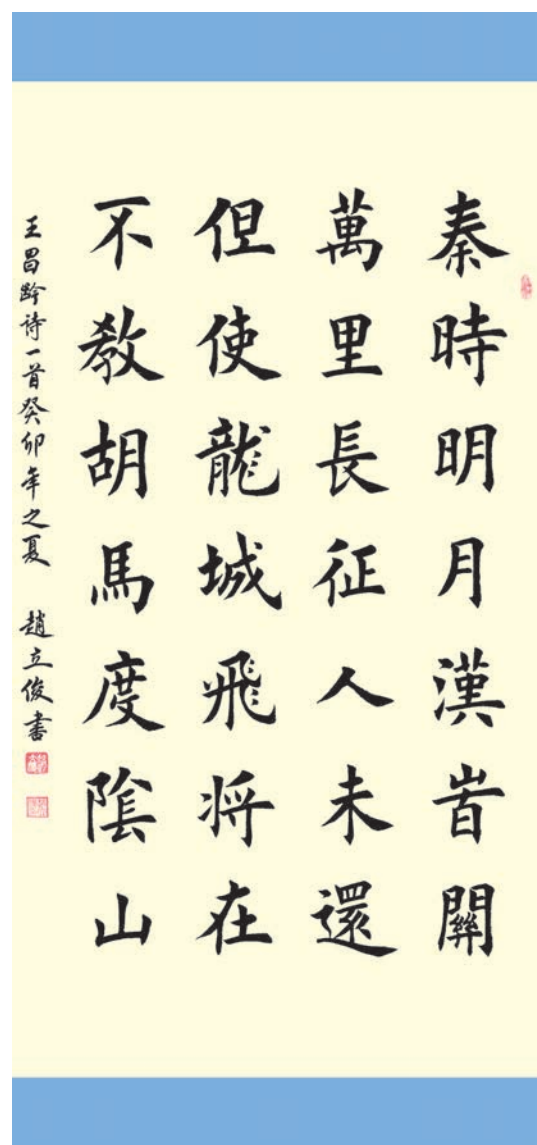 秦時明月漢旹關
萬里長征人未還
但使龍城飛将在
不教胡馬度陰山
王昌龄诗一首癸卯年之夏 趙立俊書